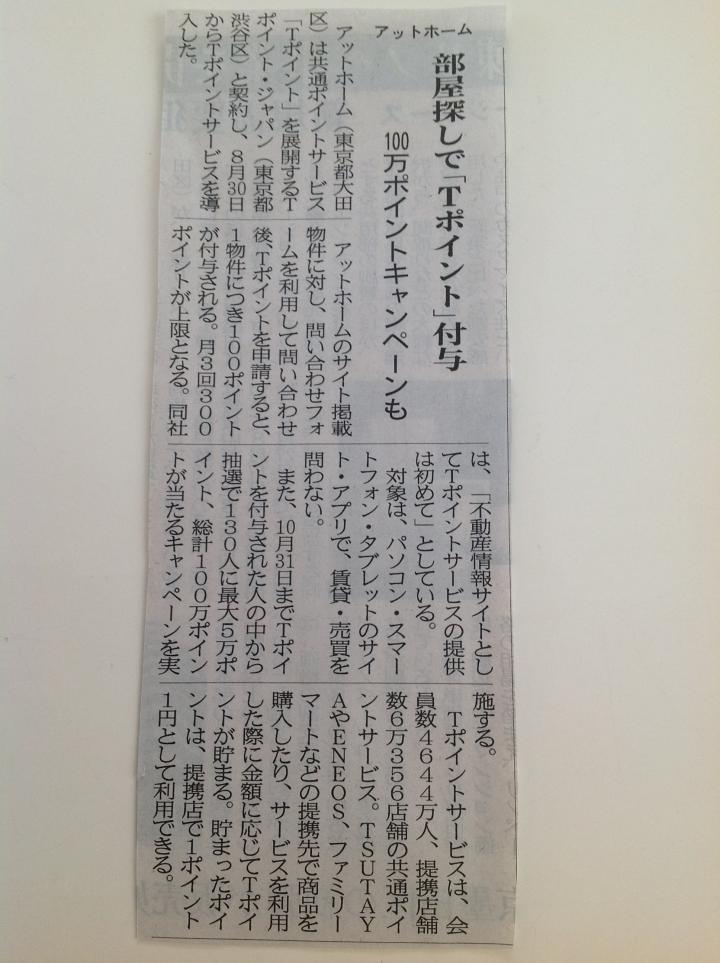 アットホーム
部屋探しで「Tポイント」付与
100万ポイントキャンペーンも
アットホーム（東京都大田
区）は共通ポイントサービス
「Tポイント」を展開するT
ポイント・ジャパン（東京都
渋谷区）と契約し、8月30日
からTポイントサービスを導
入した。
アットホームのサイト掲載
物件に対し、問い合わせフォ
ームを利用して問い合わせ
後、Tポイントを申請すると、
1物件につき100ポイント
が付与される。月3回300
ポイントが上限となる。同社
は、「不動産情報サイトとし
てTポイントサービスの提供
は初めて」としている。
対象は、パソコン・スマー
トフォン・タブレットのサイ
ト・アプリで、賃貸・売買を
問わない。
また、10月31日までTポイ
ントを付与された人の中から
抽選で130人に最大5万ポ
イント、総計100万ポイン
トが当たるキャンペーンを実
施する。
Tポイントサービスは、会
員数4644万人、提携店舗
数6万356店舗の共通ポイ
ントサービス。TSUTAY
AやENEOS、ファミリー
マートなどの提携先で商品を
購入したり、サービスを利用
した際に金額に応じてTポイ
ントが貯まる。貯まったポイ
ントは、提携店で1ポイント
1円として利用できる。